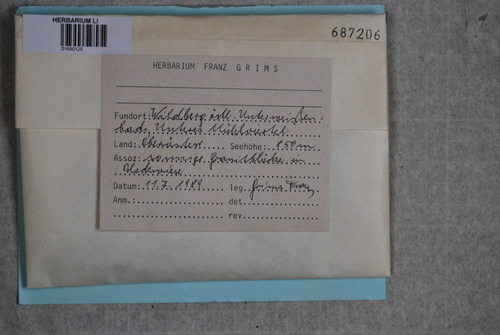 HERBARIUM LI
01690125
687206
HERBARIUM FRANZ GRIMS
Fundort: Wildberg östl. Unterweißen-
bach, Unteres Mühlviertel
Land: Oberösterr. Seehöhe: 850 m
Assoz: sonnige Granitblöcke in
Datum: 11.7.1989 leg. Grims Franz
Anm.: det.
rev.